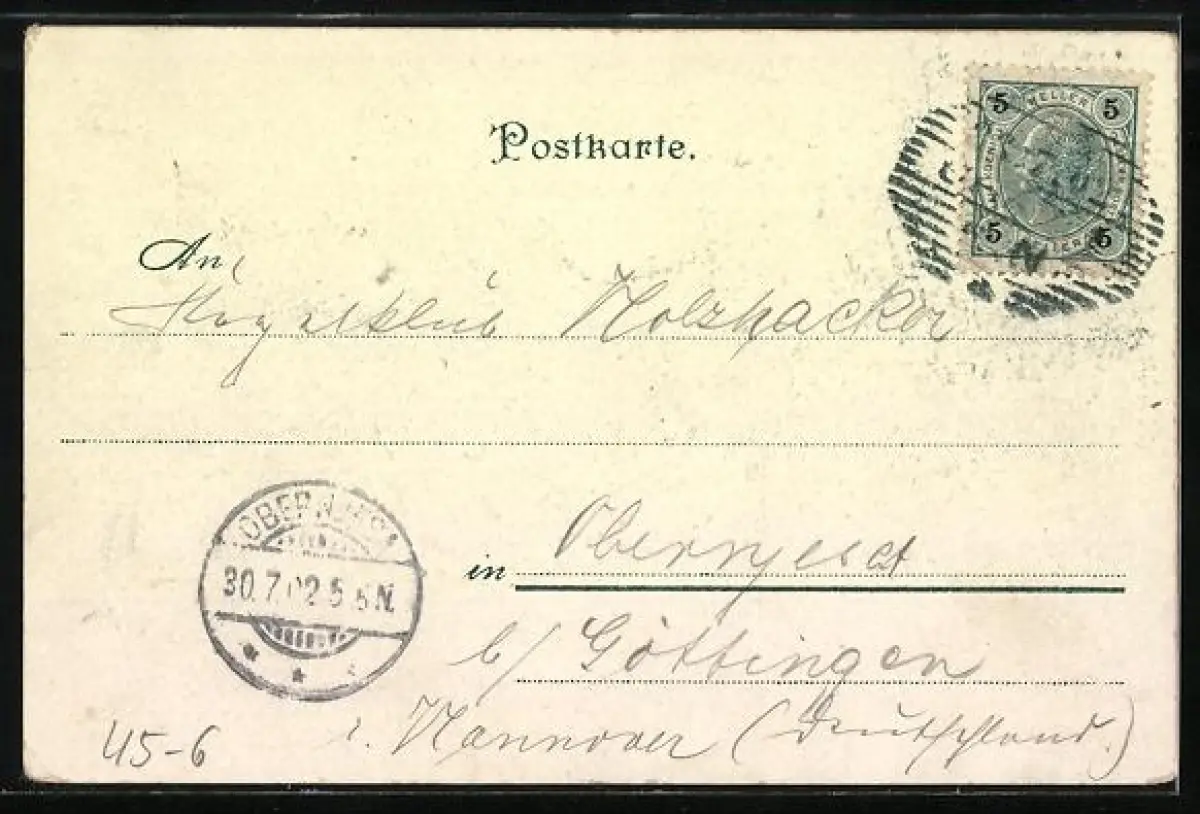 Postkarte.
5 HELLER 5
5 5
An
Holzhacker
OBERNJESA
30.7.02 5 N.
in Obernjesa
b/ Göttingen
i. Hannover (Deutschland.)
45-6